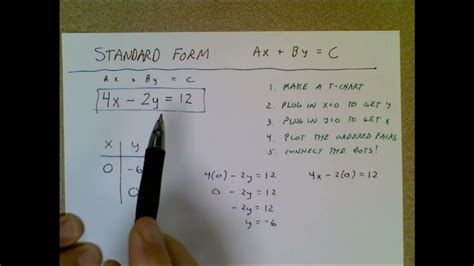 STANDARD FORM Ax + By = C
Ax + By = C
4x - 2y = 12
1. MAKE A T-CHART
2. PLUG IN x=0 TO GET y
3. PLUG IN y=0 TO GET x
4. PLOT THE ORDERED PAIRS
5. CONNECT THE DOTS!
x y
0 -6
0
4(0) - 2y = 12
0 - 2y = 12
-2y = 12
y = -6
4x - 2(0) = 12